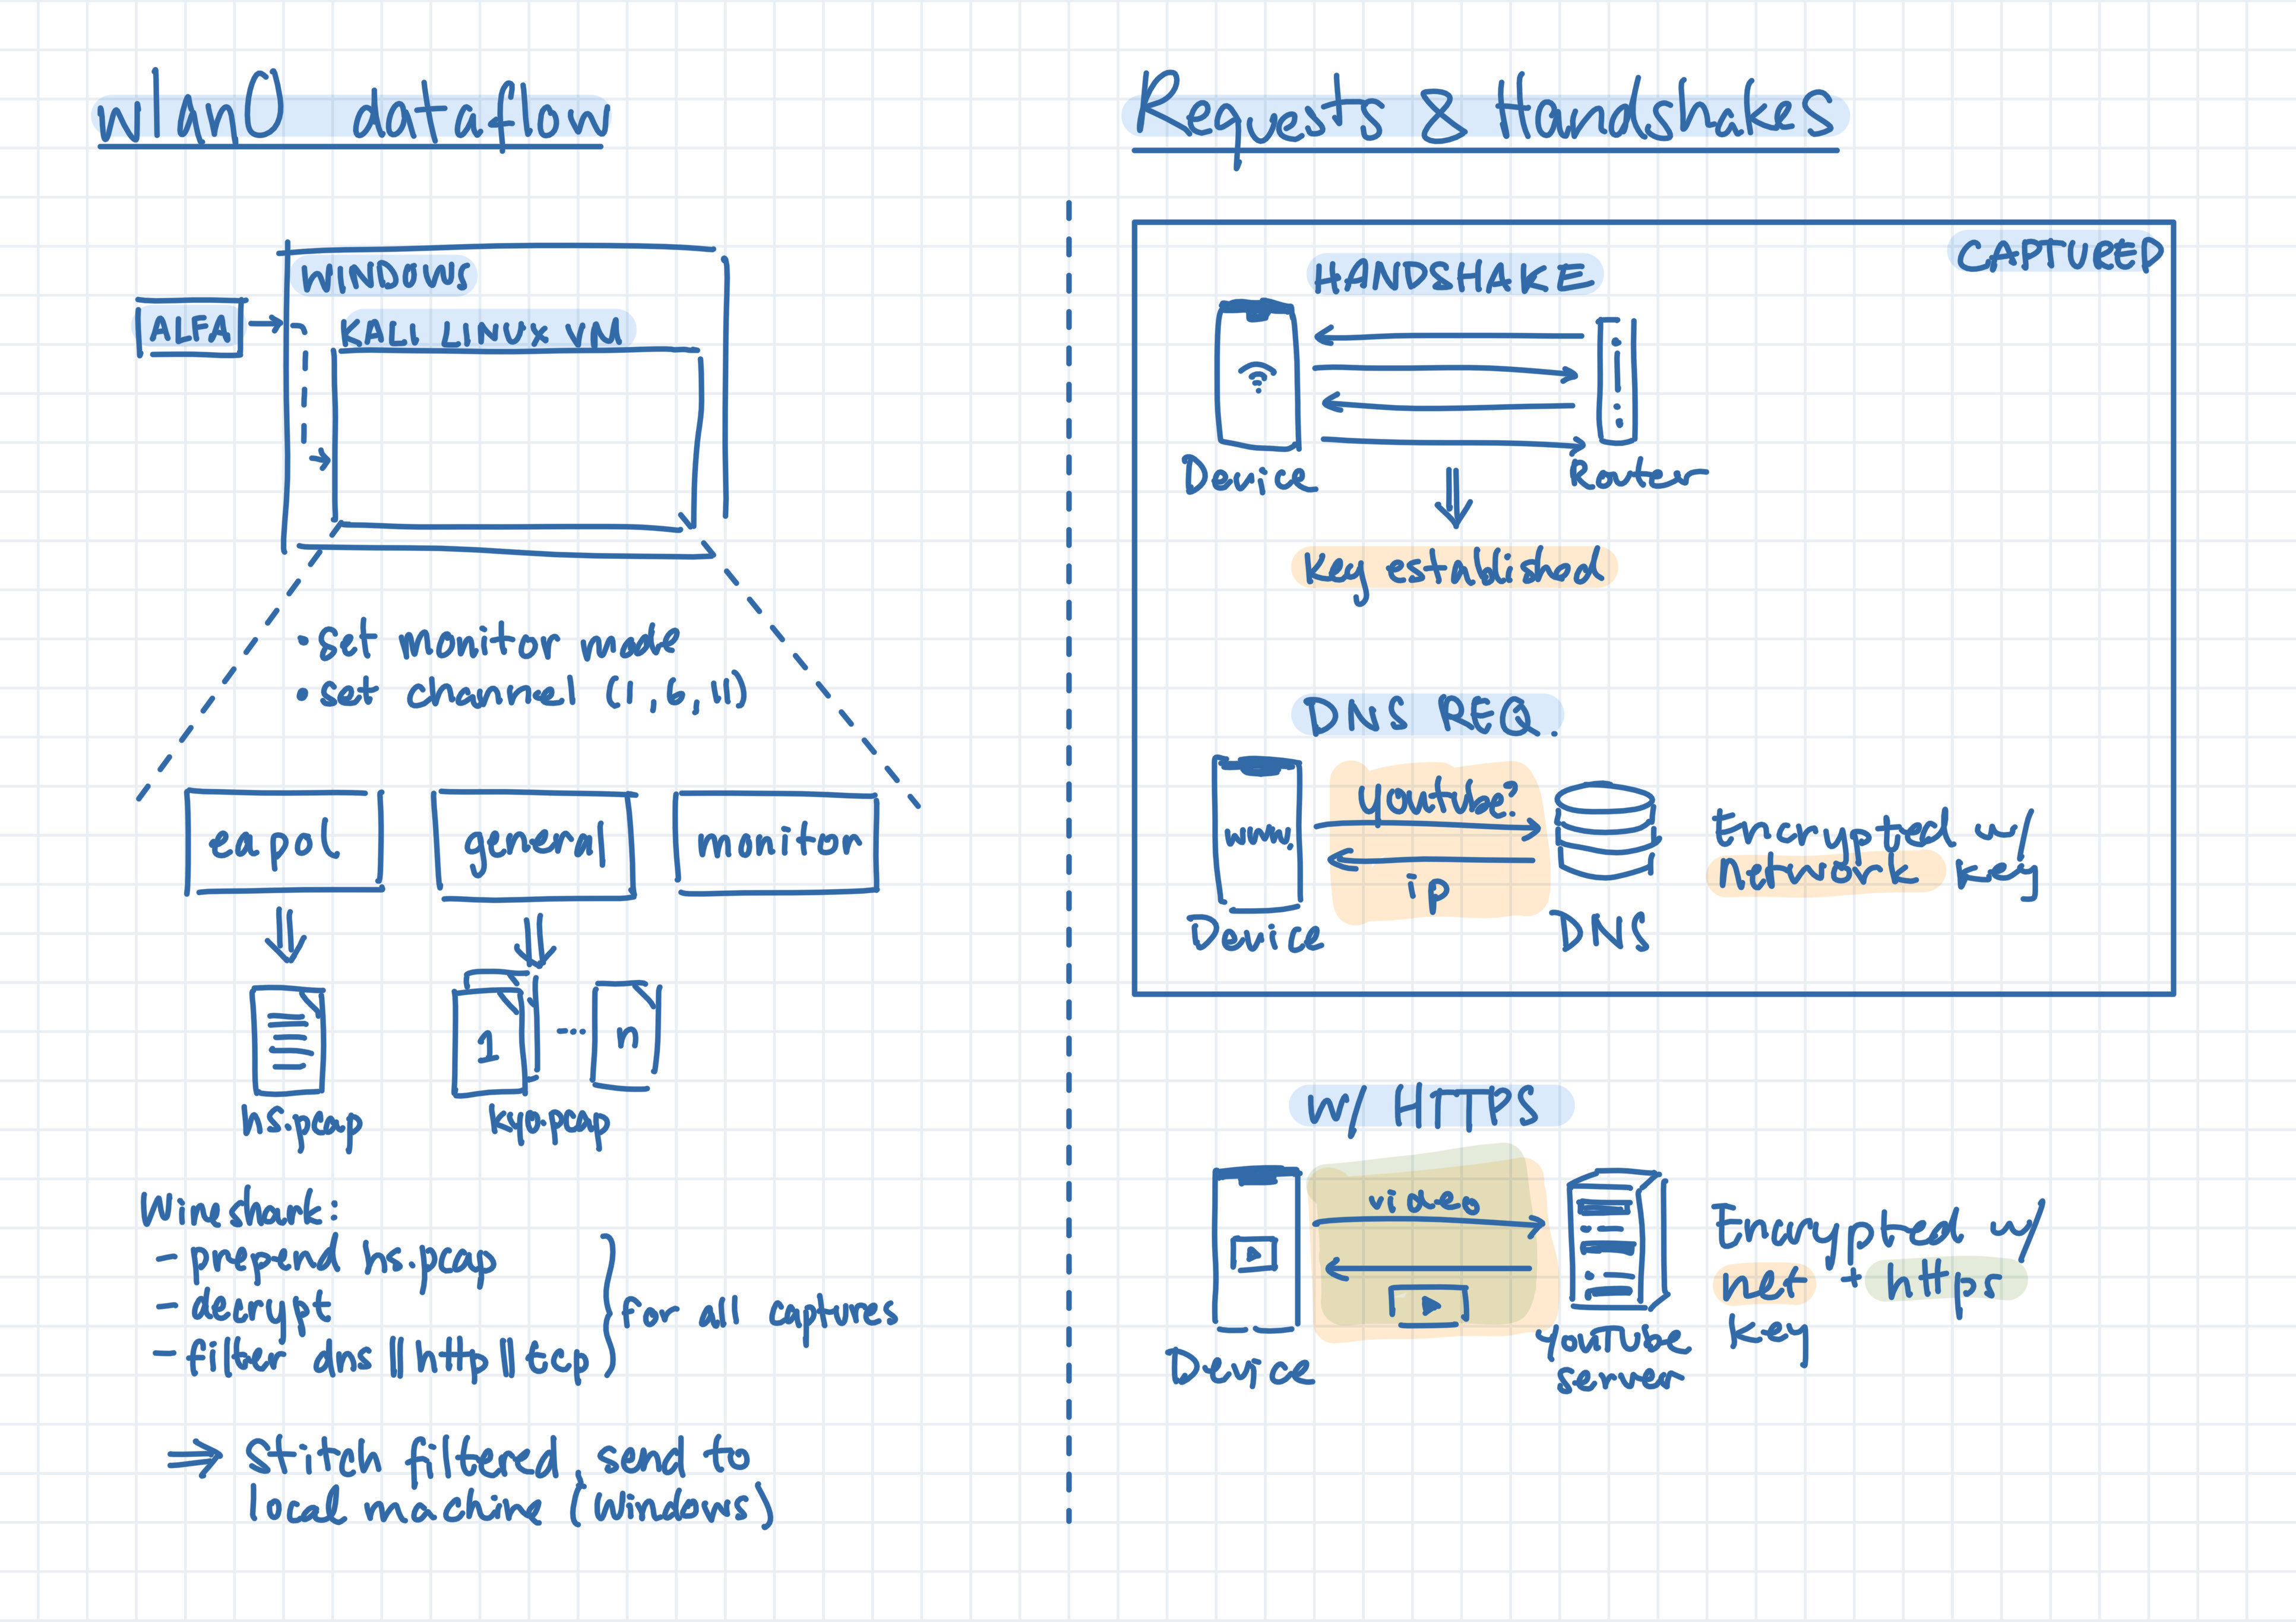 wlan0 dataflow
WINDOWS
ALFA
KALI LINUX VM
• set monitor mode
• set channel (1, 6, 11)
eapol
general
monitor
1
...
n
hs.pcap
kyo.pcap
Wireshark:
- prepend hs.pcap
- decrypt
- filter dns || http || tcp
for all captures
⇒ Stitch filtered, send to
local machine (Windows)
Requests & Handshakes
CAPTURED
HANDSHAKE
Device
Router
Key established
DNS REQ.
youtube?
www.
ip
Device
DNS
Encrypted w/
network key
W/ HTTPS
video
Device
YouTube
server
Encrypted w/
net + https
key